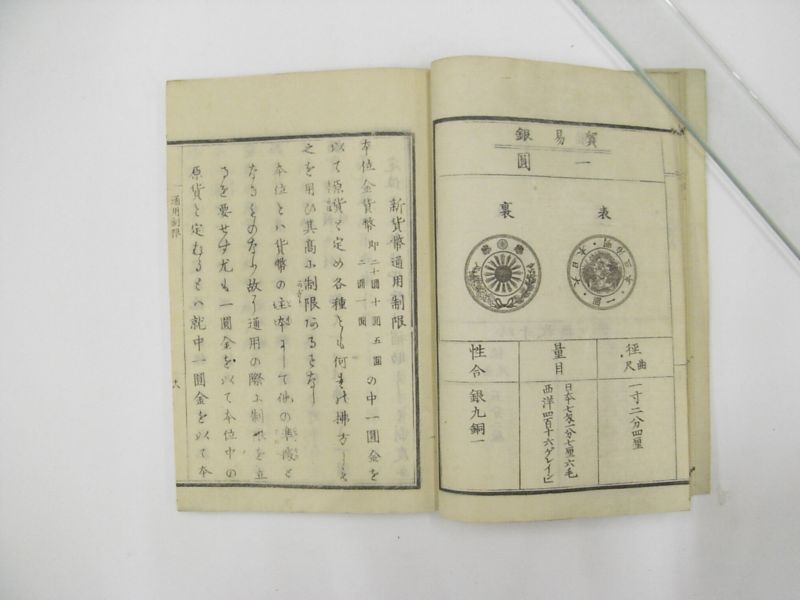 貿易銀
一圓
表
裏
徑曲尺
一寸二分四厘
量目
日本七匁二分七厘六毛
西洋四百十六ゲレイン
性合
銀九銅一
新貨幣通用制限
本位金貨幣即二十圓十圓五圓二圓一圓の中一圓金を
以て原貨と定め各種とも何れの拂方にも
之を用ひ其高に制限なし
本位とハ貨幣の主本にして他の準備と
なるものなり故に通用の際に制限を立
るを要せす尤も一圓金を以て本位中の
原貨と定むるとハ就中一圓金を以て本
通用制限